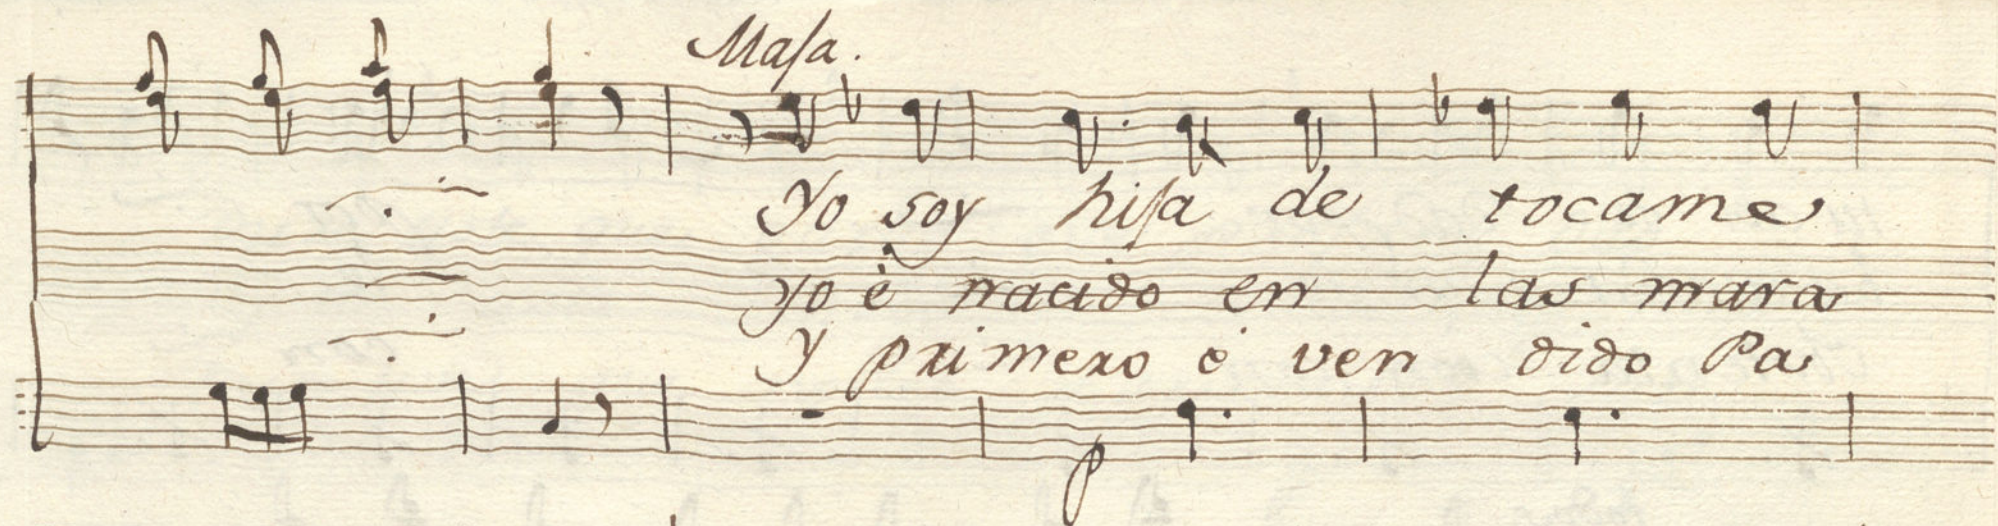 Maja.
Yo soy hija de tocame
yo é nacido en las mara
y primero é ven dido Pa
p